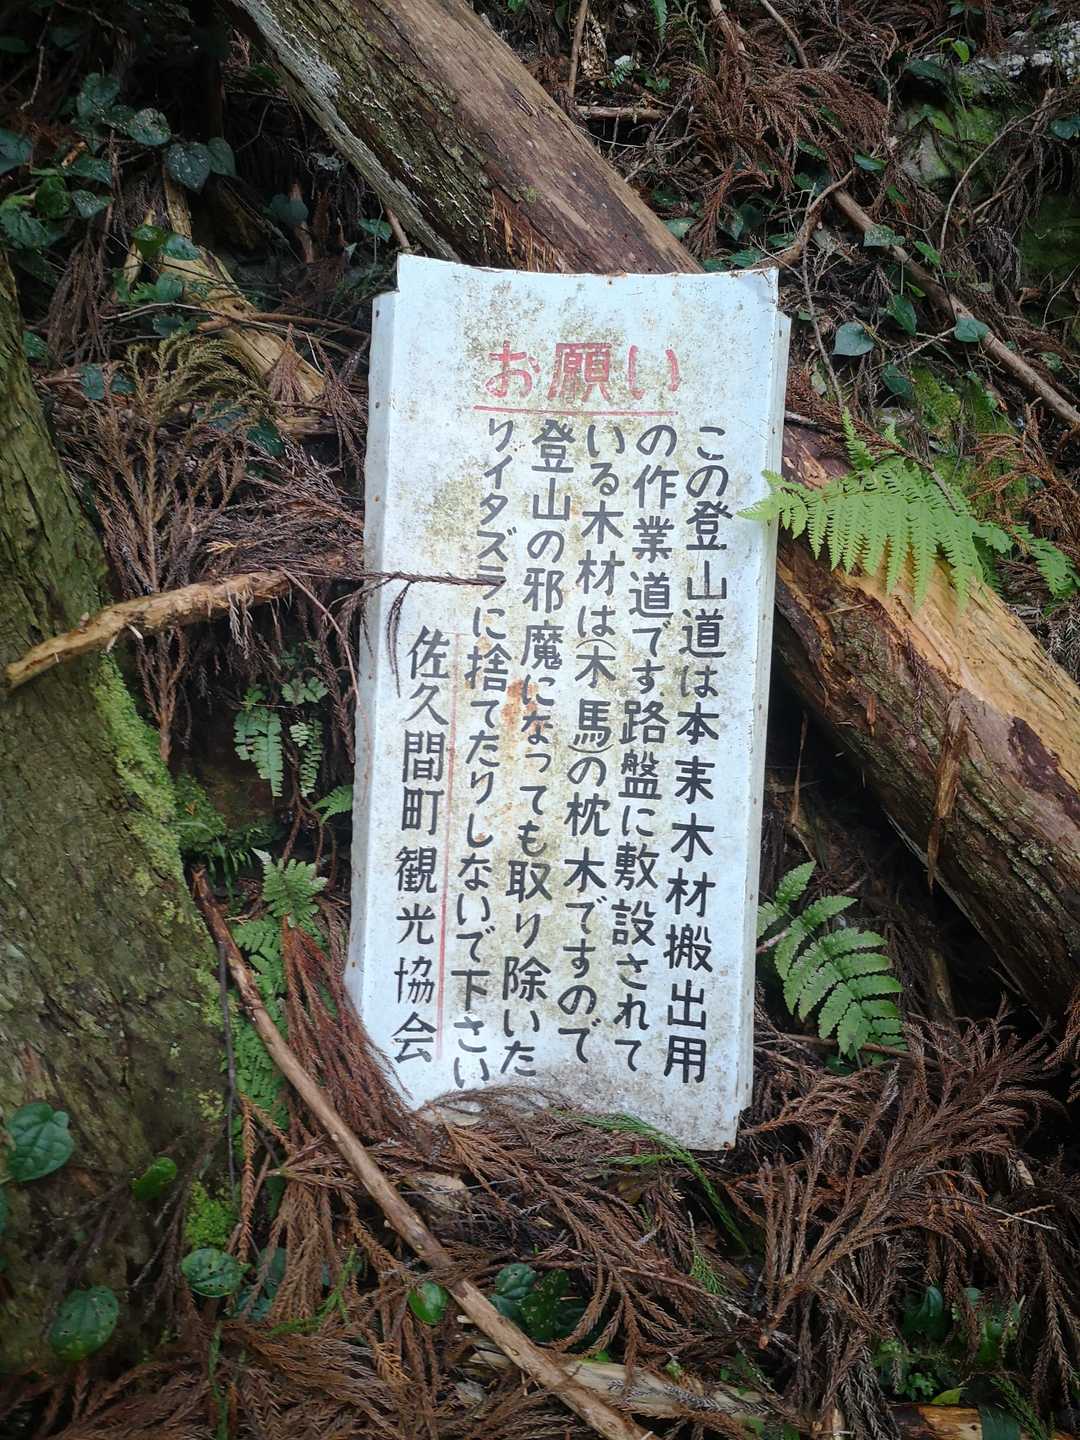 お願い
この登山道は本来木材搬出用
の作業道です路盤に敷設されて
いる木材は(木馬)の枕木ですので
登山の邪魔になっても取り除いた
りイタズラに捨てたりしないで下さい
佐久間町観光協会